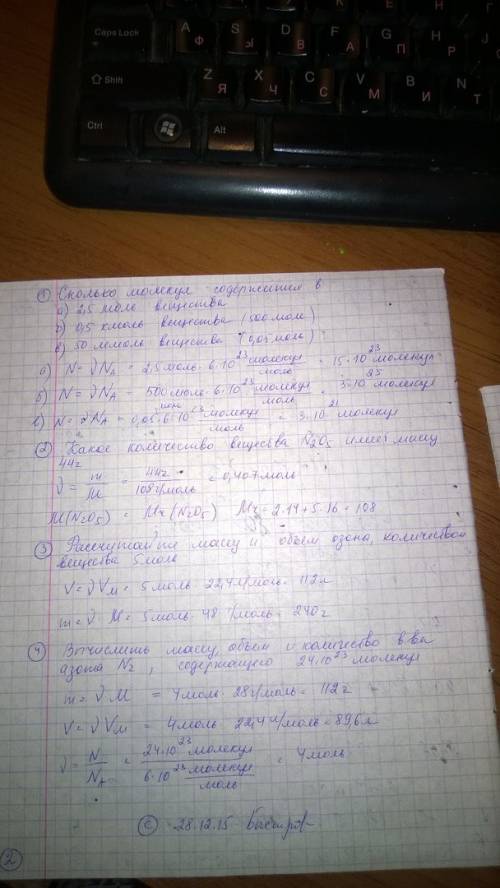 Caps Lock
A Ф
S Ы
D В
F А
G П
H Р
Shift
Z Я
X Ч
C С
V М
B И
N Т
Ctrl
Alt
① Сколько молекул содержится в
а) 2,5 моль вещества
б) 0,5 кмоль вещества (500 моль)
в) 50 ммоль вещества (0,05 моль)
а) N = ν N_A = 2,5 моль · 6·10^23 молекул/моль = 15·10^23 молекул
б) N = ν N_A = 500 моль · 6·10^23 молекул/моль = 3·10^25 молекул
в) N = ν N_A = 0,05 моль · 6·10^23 молекул/моль = 3·10^21 молекул
② Какое количество вещества N2O5 имеет массу
44г
ν = m/M = 44г/108г/моль = 0,407 моль
M(N2O5) = Mr(N2O5) Mr = 2·14+5·16 = 108
③ Рассчитайте массу и объем озона, количеством
вещества 5 моль
V = ν V_M = 5 моль · 22,4 л/моль = 112 л
m = ν M = 5 моль · 48 г/моль = 240 г
④ Вычислить массу, объем и количество в-ва
азота N2, содержащего 24·10^23 молекул
m = ν M = 4 моль · 28 г/моль = 112 г
V = ν V_M = 4 моль 22,4 л/моль = 89,6 л
ν = N/N_A = 24·10^23 молекул / 6·10^23 молекул/моль = 4 моль
© 28.12.15
②